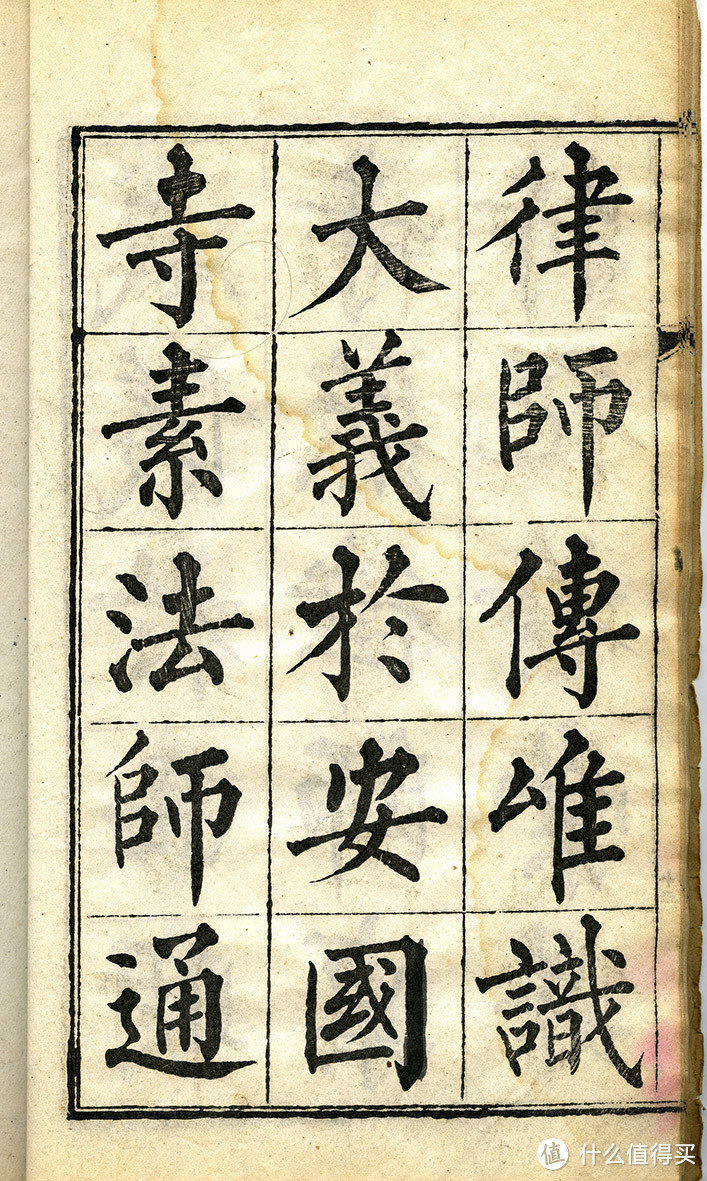 律師傳唯識
大義於安國
寺素法師通
值 什么值得买